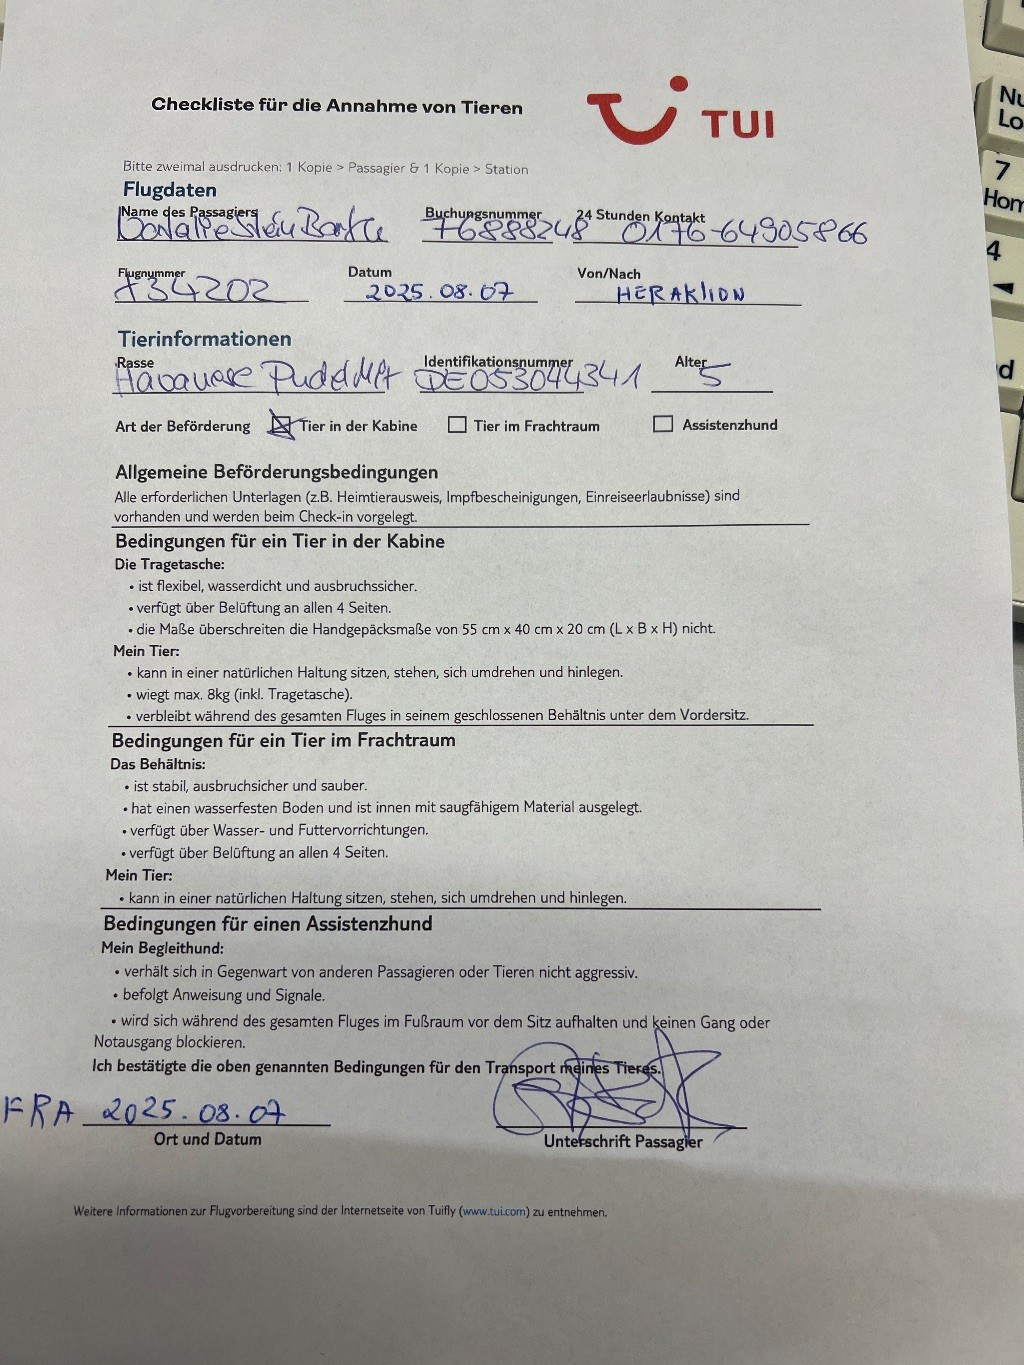 Checkliste für die Annahme von Tieren
TUI
Bitte zweimal ausdrucken: 1 Kopie > Passagier & 1 Kopie > Station
Flugdaten
Name des Passagiers Buchungsnummer 24 Stunden Kontakt
76888248 0176-64905866
Flugnummer Datum Von/Nach
X34202 2025.08.07 HERAKlION
Tierinformationen
Rasse Identifikationsnummer Alter
Havanese Pudel DE053044341 5
Art der Beförderung Tier in der Kabine Tier im Frachtraum Assistenzhund
Allgemeine Beförderungsbedingungen
Alle erforderlichen Unterlagen (z.B. Heimtierausweis, Impfbescheinigungen, Einreiseerlaubnisse) sind
vorhanden und werden beim Check-in vorgelegt.
Bedingungen für ein Tier in der Kabine
Die Tragetasche:
• ist flexibel, wasserdicht und ausbruchssicher.
• verfügt über Belüftung an allen 4 Seiten.
• die Maße überschreiten die Handgepäcksmaße von 55 cm x 40 cm x 20 cm (L x B x H) nicht.
Mein Tier:
• kann in einer natürlichen Haltung sitzen, stehen, sich umdrehen und hinlegen.
• wiegt max. 8kg (inkl. Tragetasche).
• verbleibt während des gesamten Fluges in seinem geschlossenen Behältnis unter dem Vordersitz.
Bedingungen für ein Tier im Frachtraum
Das Behältnis:
• ist stabil, ausbruchsicher und sauber.
• hat einen wasserfesten Boden und ist innen mit saugfähigem Material ausgelegt.
• verfügt über Wasser- und Futtervorrichtungen.
• verfügt über Belüftung an allen 4 Seiten.
Mein Tier:
• kann in einer natürlichen Haltung sitzen, stehen, sich umdrehen und hinlegen.
Bedingungen für einen Assistenzhund
Mein Begleithund:
• verhält sich in Gegenwart von anderen Passagieren oder Tieren nicht aggressiv.
• befolgt Anweisung und Signale.
• wird sich während des gesamten Fluges im Fußraum vor dem Sitz aufhalten und keinen Gang oder
Notausgang blockieren.
Ich bestätigte die oben genannten Bedingungen für den Transport meines Tieres.
FRA 2025.08.07
Ort und Datum Unterschrift Passagier
Weitere Informationen zur Flugvorbereitung sind der Internetseite von Tuifly (www.tui.com) zu entnehmen.
Nu
Lo
7
Hom
4
d